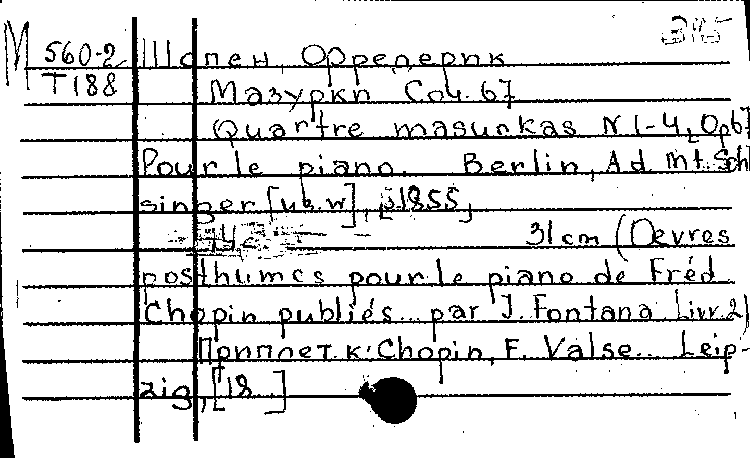 М 560-2 Шопен, Фредерик
Т188 Мазурки Соч. 67
Quartre masurkas N 1-4, Op67
Pour le piano. Berlin, Ad. Mt. Schl
singer [u.s.w], [1855]
31 cm (Oevres
posthumes pour le piano de Fréd.
Chopin publiés... par J. Fontana Livr. 2)
Приплет. к: Chopin, F. Valse... Leip-
zig, [18..]